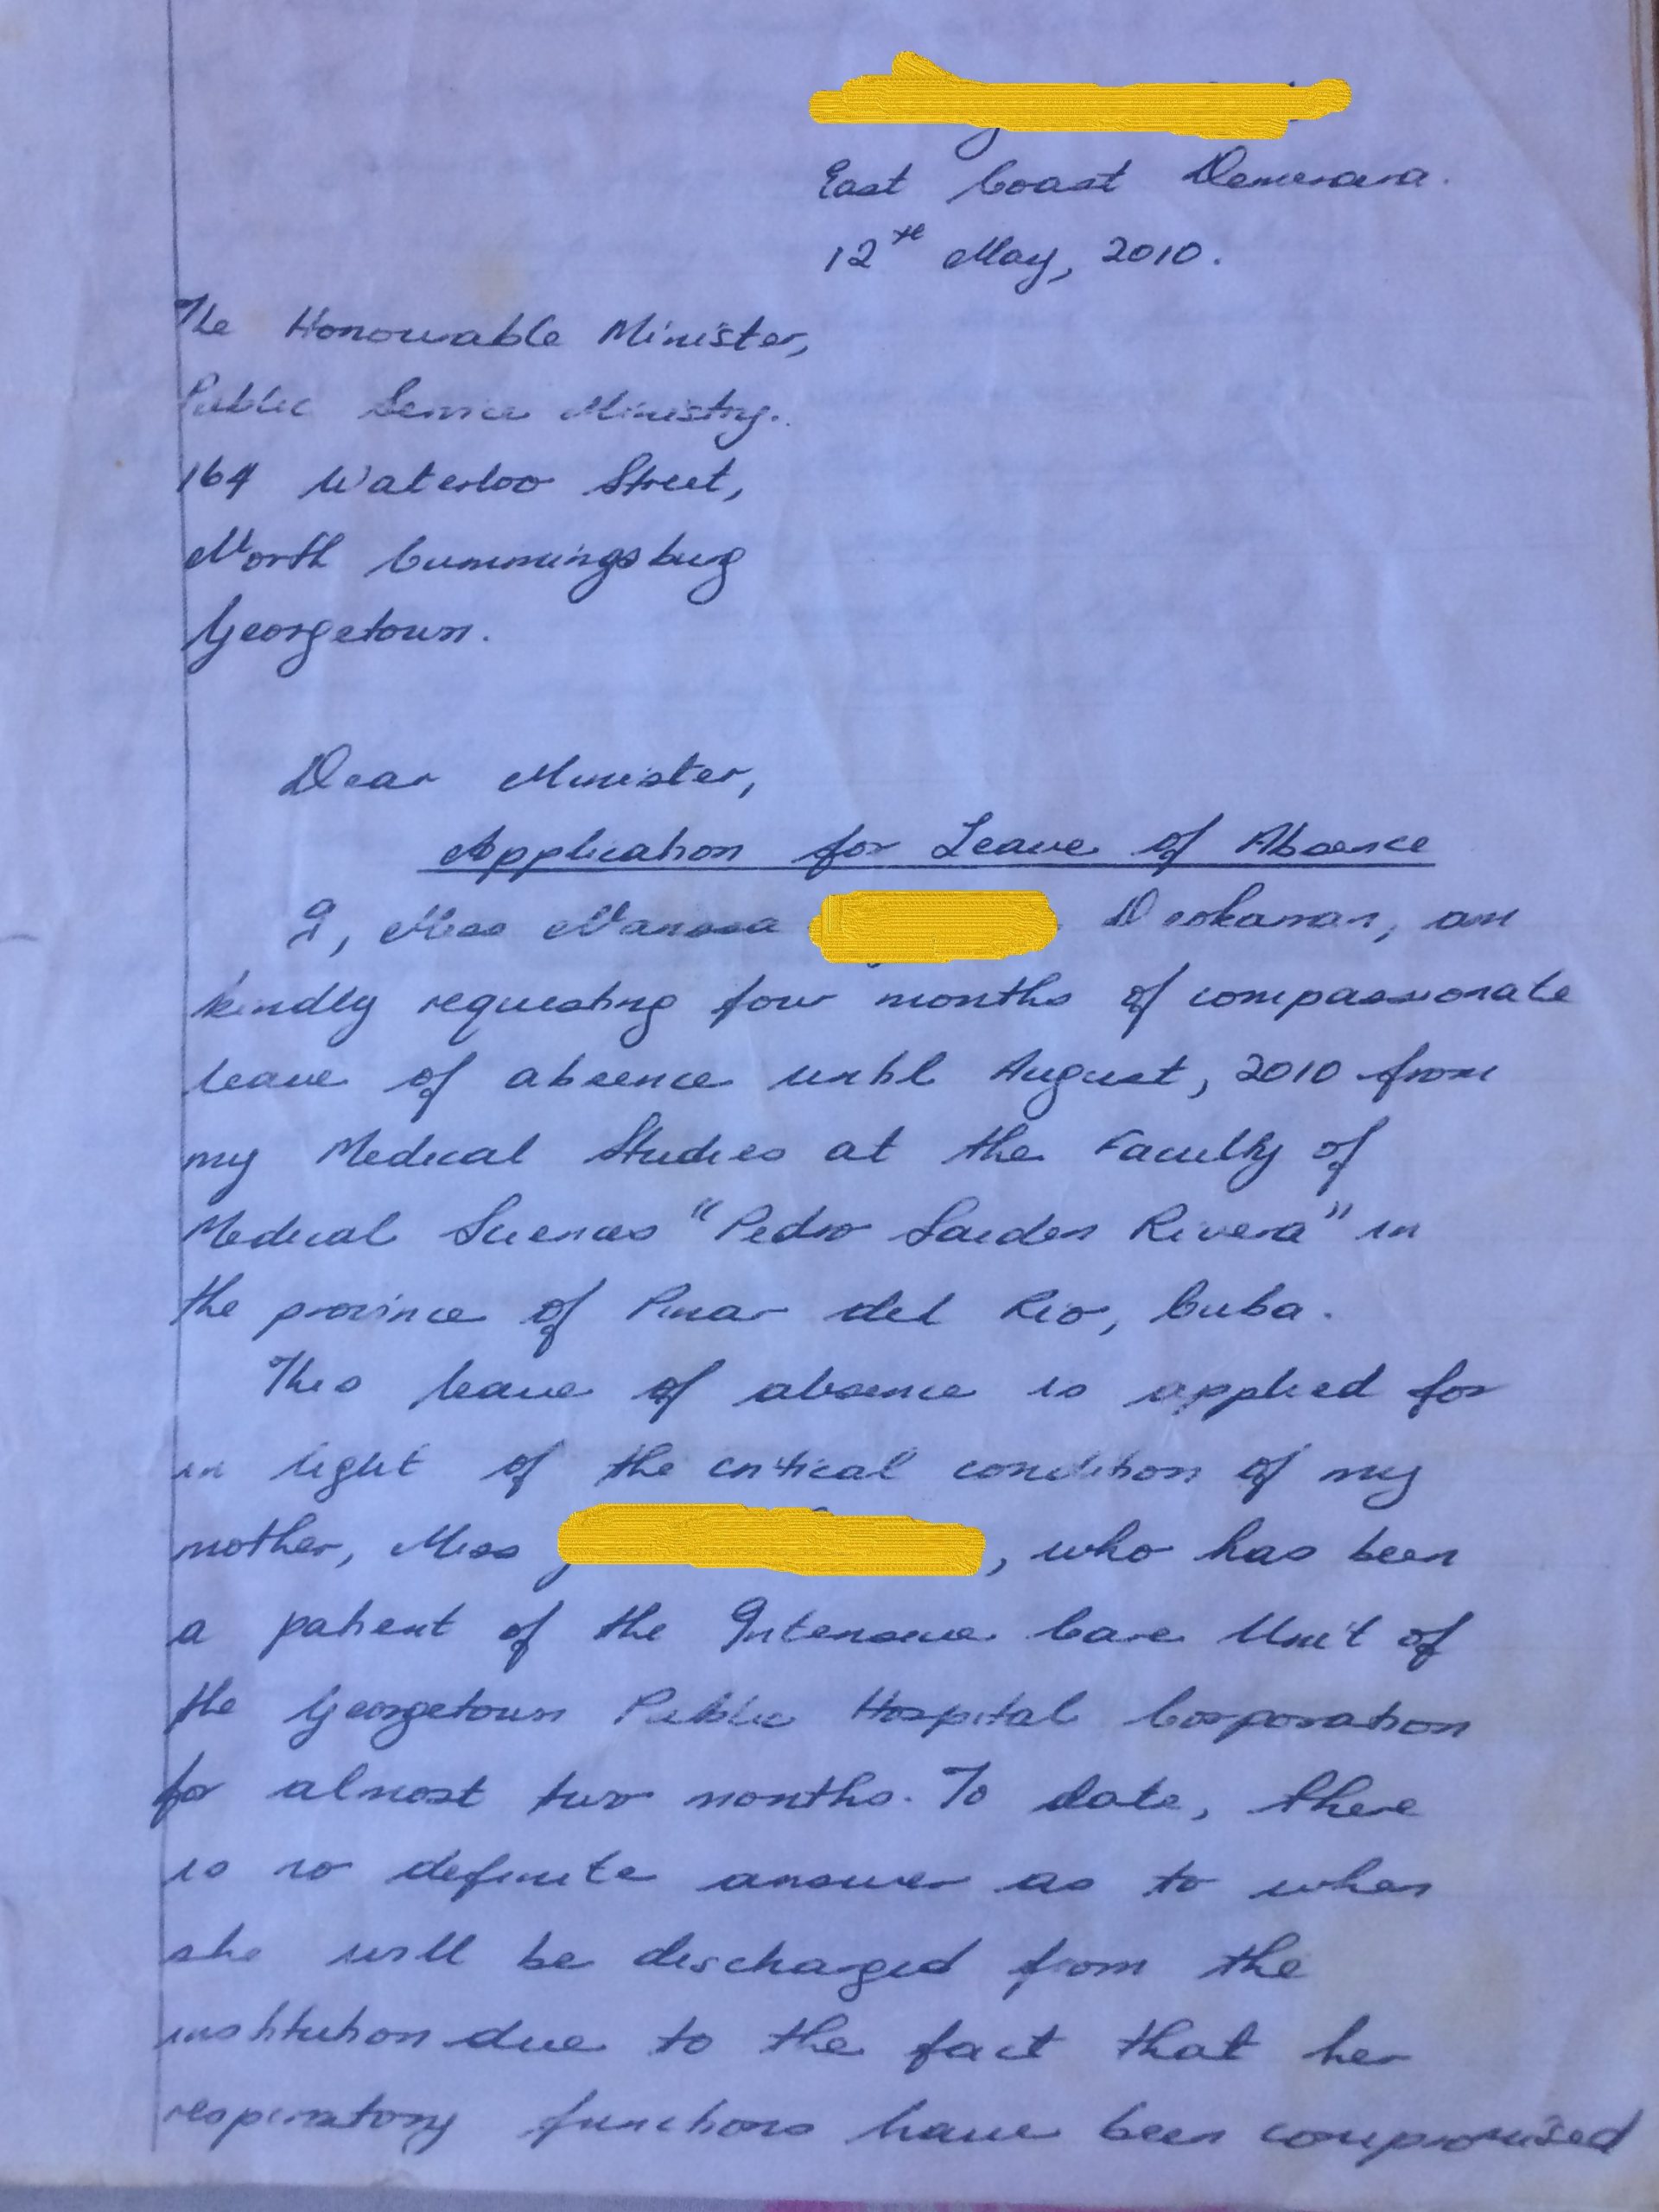 East Coast Demerara.
12th May, 2010.
The Honourable Minister,
Public Service Ministry.
164 Waterloo Street,
North Cummingsburg
Georgetown.
Dear Minister,
Application for Leave of Absence
I, Miss Deokarran, am
kindly requesting four months of compassionate
leave of absence until August, 2010 from
my Medical Studies at the Faculty of
Medical Sciences "Pedro Saiden Rivera" in
the province of Pinar del Rio, Cuba.
This leave of absence is applied for
in light of the critical condition of my
mother, Miss , who has been
a patient of the Intensive Care Unit of
the Georgetown Public Hospital Corporation
for almost two months. To date, there
is no definite answer as to when
she will be discharged from the
institution due to the fact that her
respiratory functions have been compromised